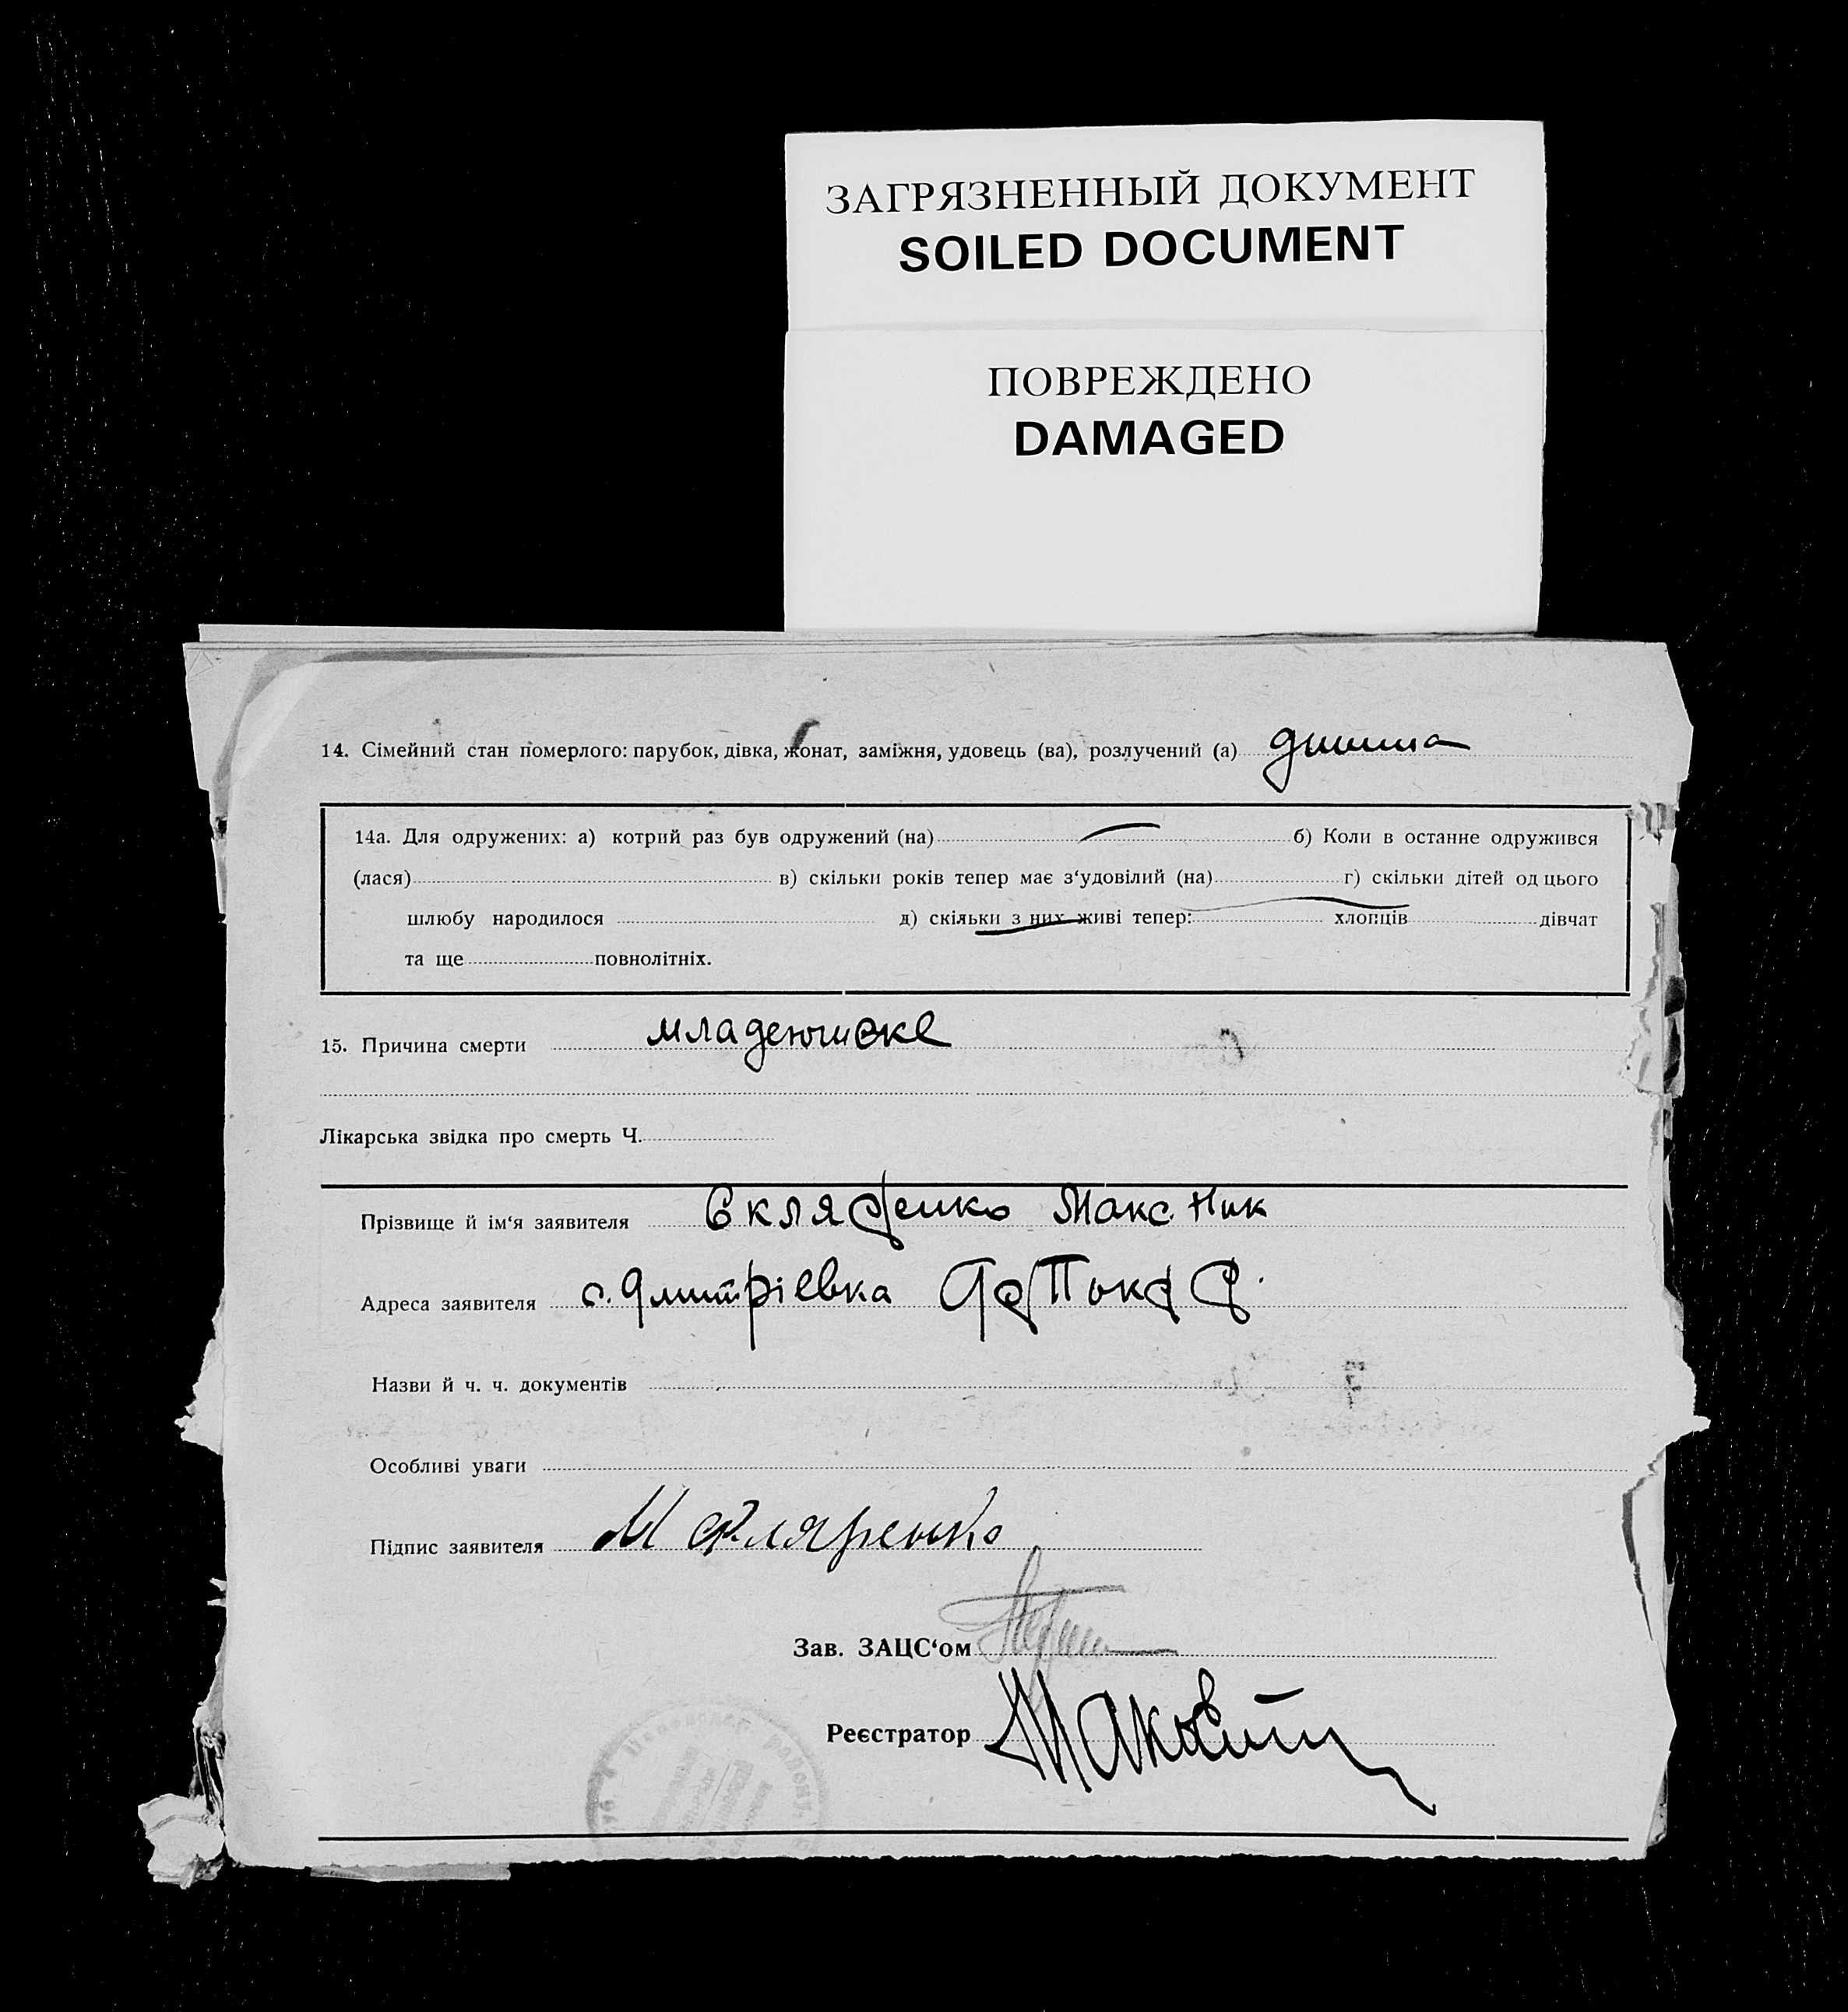 ЗАГРЯЗНЕННЫЙ ДОКУМЕНТ
SOILED DOCUMENT
ПОВРЕЖДЕНО
DAMAGED
14. Сімейний стан померлого: парубок, дівка, жонат, заміжня, удовець (ва), розлучений (а)
14а. Для одружених: а) котрий раз був одружений (на) б) Коли в останне одружився
(лася) в) скільки років тепер має з‘удовілий (на) г) скільки дітей од цього
шлюбу народилося д) скільки з них живі тепер: хлопців дівчат
та ще повнолітніх.
15. Причина смерти
Лікарська звідка про смерть Ч.
Прізвище й ім‘я заявителя Скляренко Макс. Ник
Адреса заявителя с. Дмитріевка
Назви й ч. ч. документів
Особливі уваги
Підпис заявителя М Скляренко
Зав. ЗАЦС‘ом
Реєстратор
району